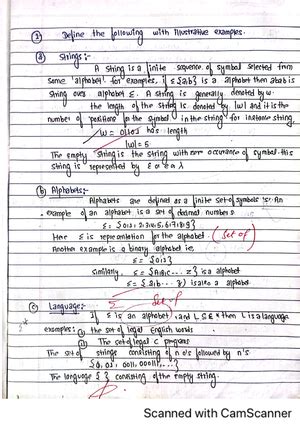 ① Define the following with Illustrative examples.
(a) Strings:-
A string is a finite sequence of symbol selected from
some 'alphabet'. for examples, if Σ {a,b} is a alphabet then abab is
string over alphabet Σ. A string is generally denoted by w.
the length of the string is denoted by |w| and it is the
number of 'positions' for the symbol in the string for instance string.
w = 01101 has length
|w| = 5
The empty string is the string with zero occurance of symbol. this
string is represented by ε or λ
(b) Alphabets:-
Alphabets are defined as a finite set of symbols 'Σ'. An
example of an alphabet is a set of decimal numbers
Σ = {0,1,2,3,4,5,6,7,8,9}
Here Σ is representation for the alphabet. (set of
Another example is a binary alphabet ie,
Σ = {0,1}
similarly, Σ = {A,B,C, ... Z} is a alphabet
Σ = {a,b, ... z} is also a alphabet
(c) Language:-
If Σ is an alphabet, and L ⊆ Σ* then L is a language
examples: ① the set of legal English words
② The set of legal C programs
The set of strings consisting of n 0's followed by n 1's
{ε, 01, 0011, 000111, ...}
The language { } consisting of the empty string.
Scanned with CamScanner